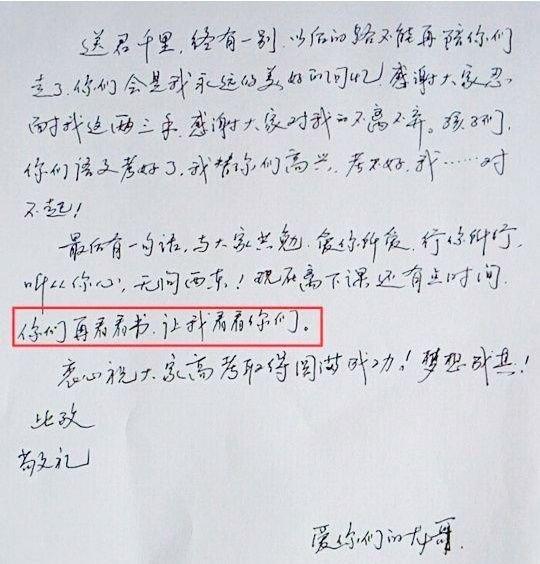 送君千里,终有一别,以后的路不能再陪你们
走了.你们会是我永远的美好的回忆.感谢大家忍
耐我这两三年.感谢大家对我的不离不弃。孩子们,
你们语文考好了,我替你们高兴,考不好,我……对
不起!
最后有一句话,与大家共勉.爱你所爱,行你所行,
听从你心,无问西东!现在离下课还有点时间.
你们再看看书.让我看看你们。
衷心祝大家高考取得圆满成功!梦想成真!
此致
敬礼
爱你们的龙哥.